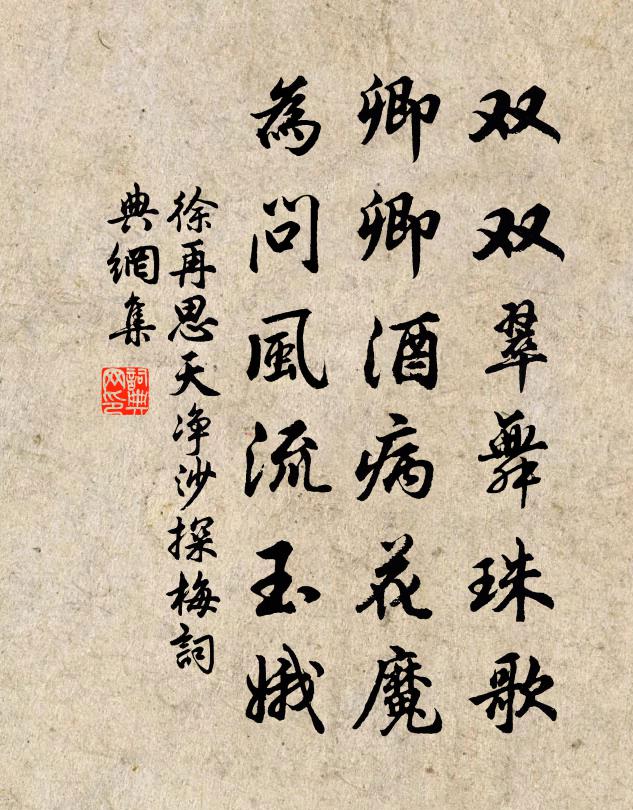 双双翠舞珠歌
卿卿酒病花魔
為问風流玉娥
徐再思天净沙探梅詞
典網集
詞典网印